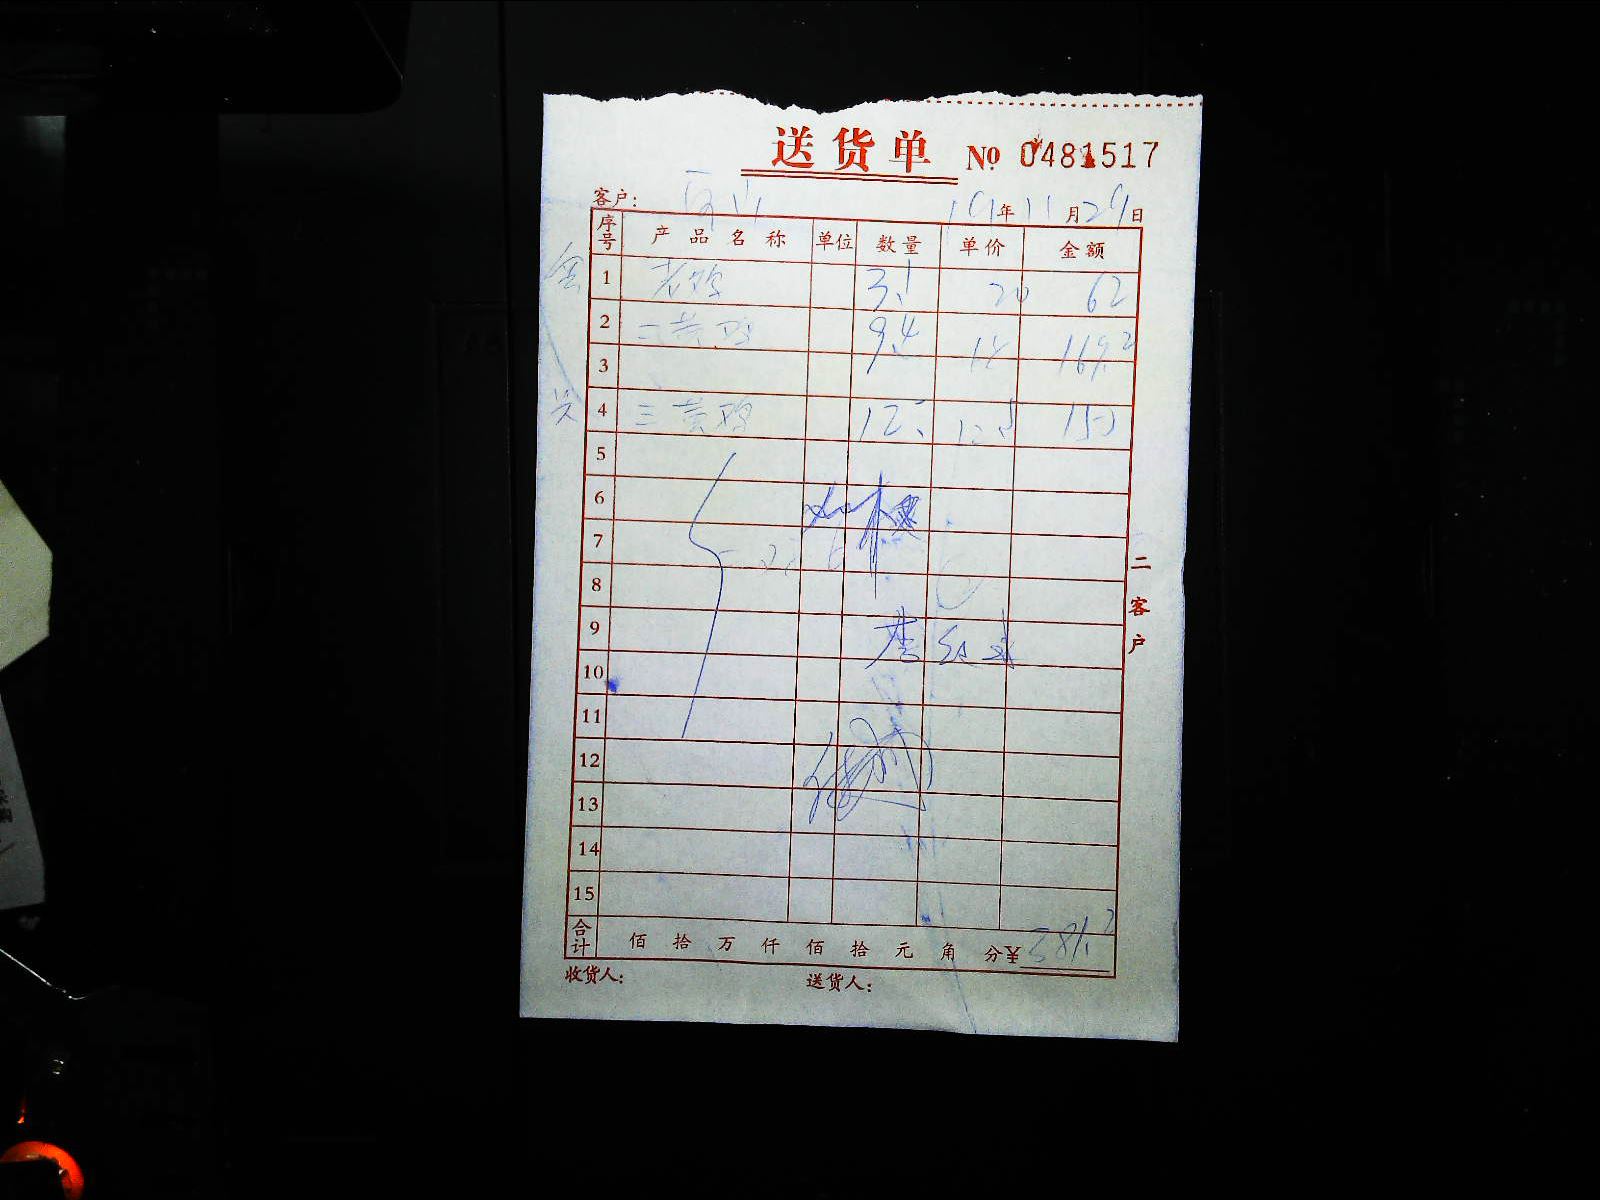 送货单 No 0481517
客户:
19年11月29日
序号 产品名称 单位 数量 单价 金额
1 老鸡 3.1 20 62
2 三黄鸡 9.4 18 169.2
3
4 三黄鸡 12 12.5 150
5
6
7
8
9
10
11
12
13
14
15
合计 佰 拾 万 仟 佰 拾 元 角 分 ¥ 381.2
收货人: 送货人:
二客户